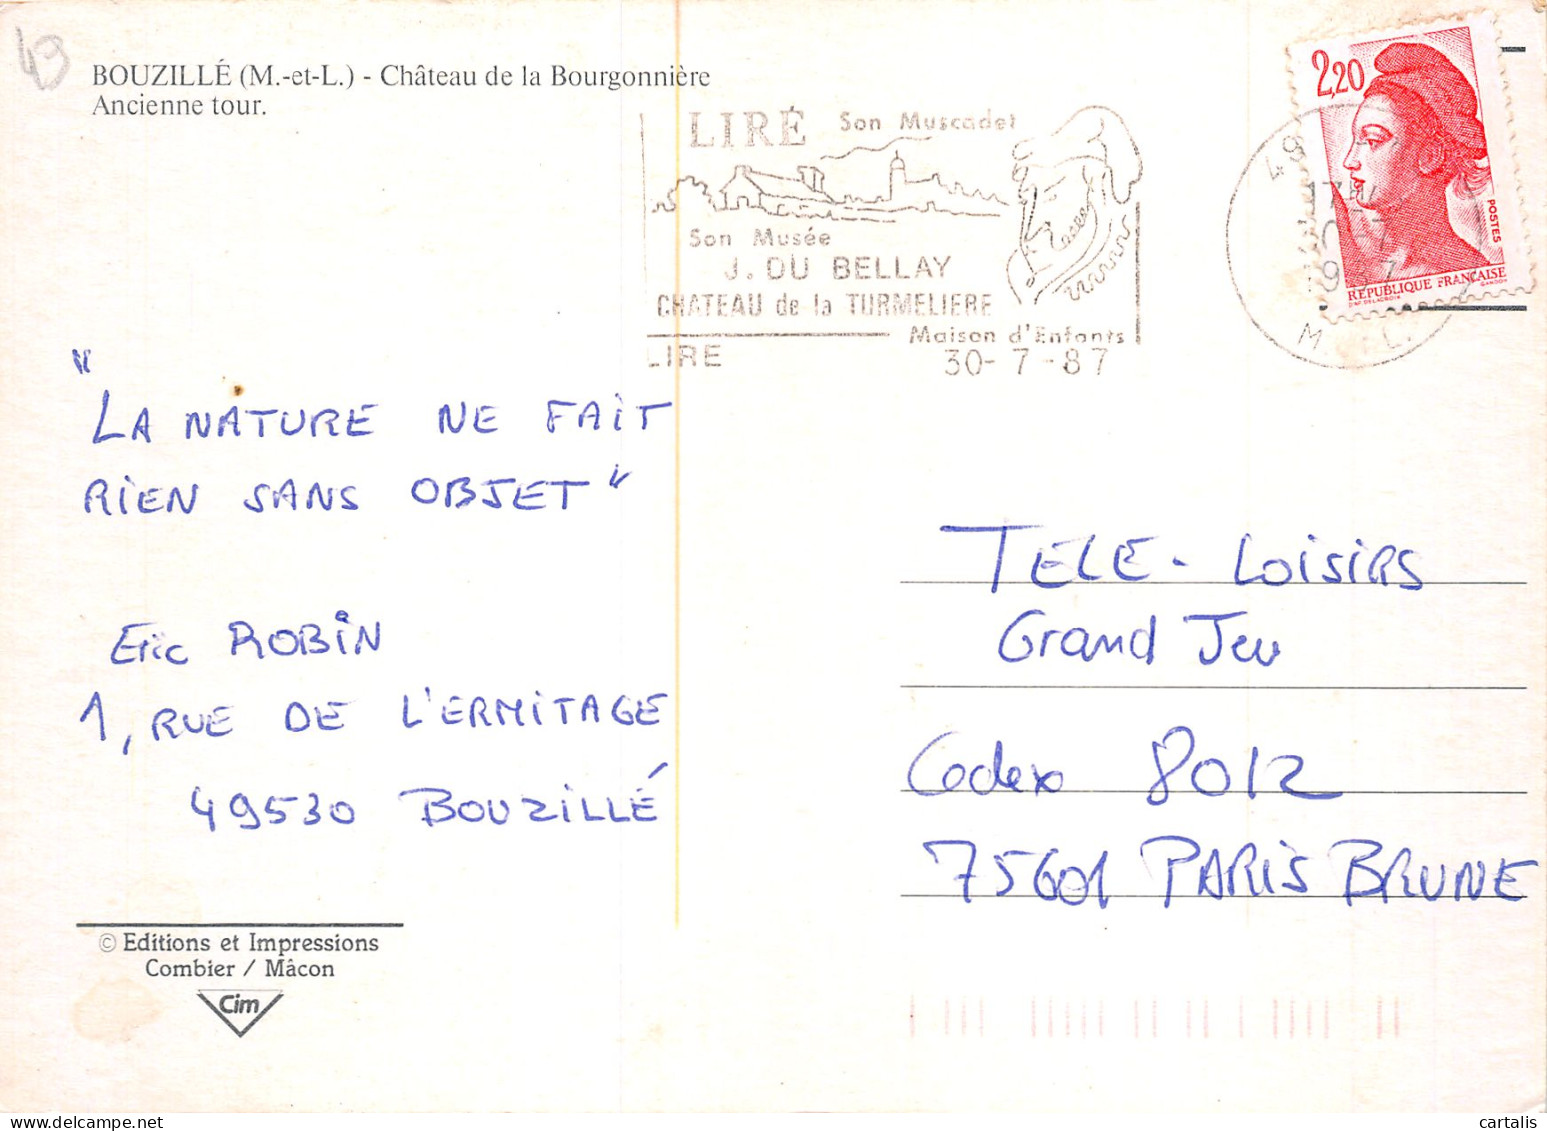 49
BOUZILLÉ (M.-et-L.) - Château de la Bourgonnière
Ancienne tour.
LIRÉ Son Muscadet
Son Musée
J. DU BELLAY
CHATEAU de la TURMELIERE
Maison d'Enfants
LIRE
30-7-87
49
1987
M. L.
2,20
POSTES
REPUBLIQUE FRANÇAISE
D'AP. DELACROIX GANDON
"LA NATURE NE FAIT
RIEN SANS OBJET"
Eric ROBIN
1, RUE DE L'ERMITAGE
49530 BOUZILLÉ
TELE-LOISIRS
Grand Jeu
Cedex 8012
75601 PARIS BRUNE
© Editions et Impressions
Combier / Mâcon
Cim
cartalis